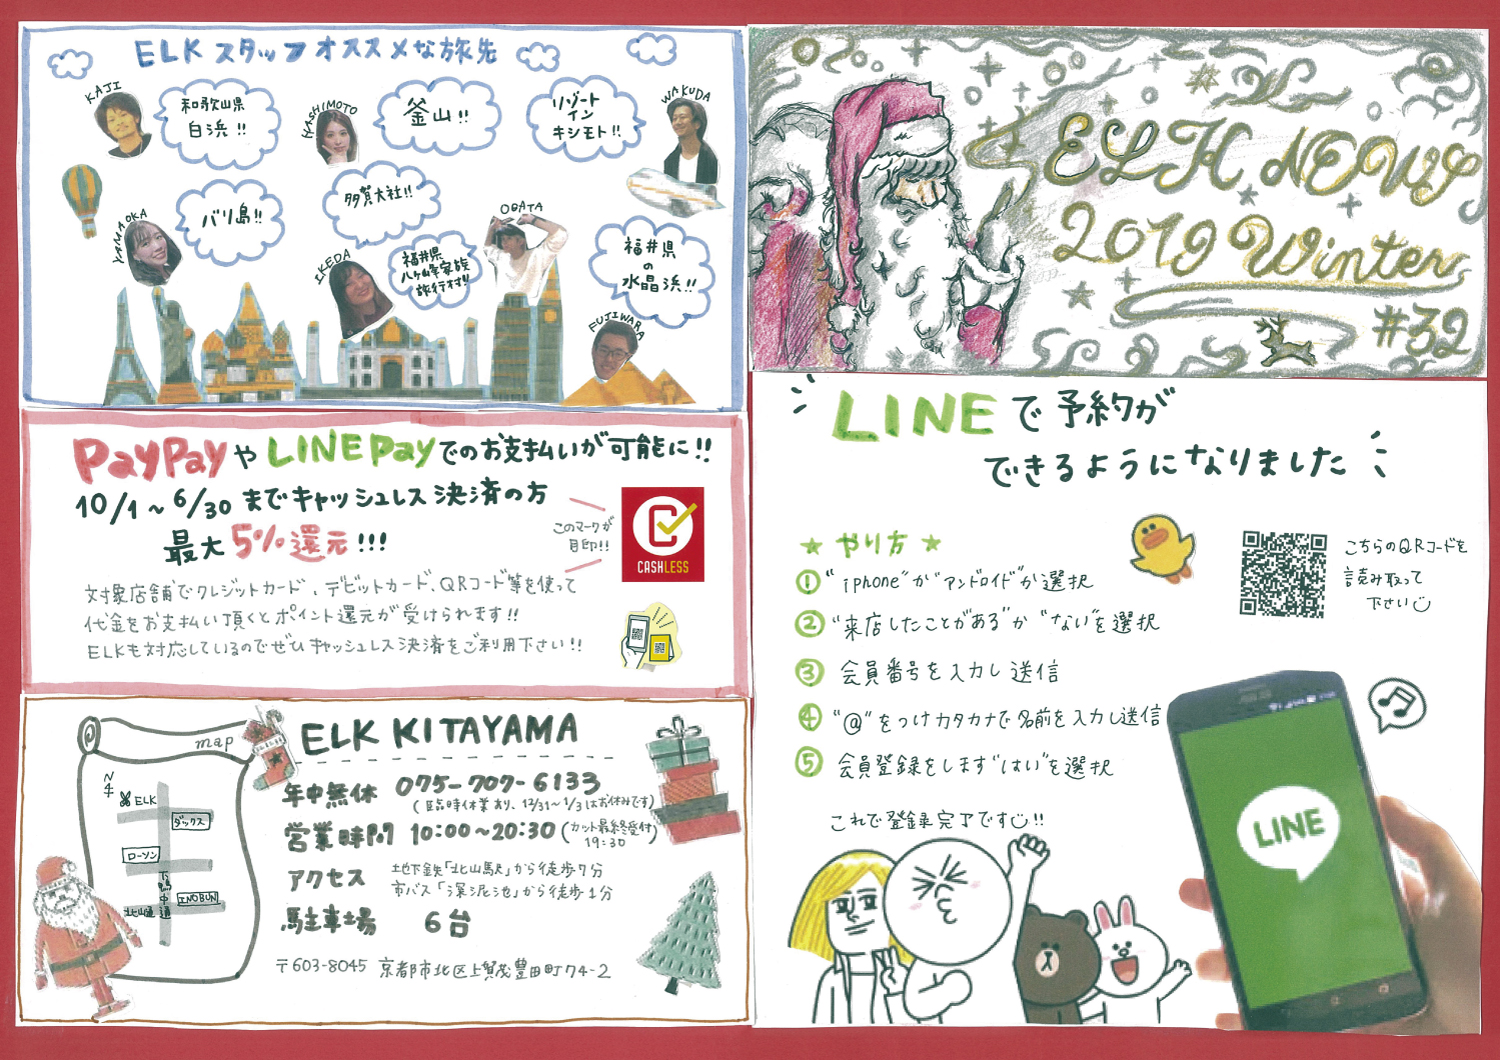 ELK スタッフオススメな旅先
KAJI
和歌山県
白浜!!
HASHIMOTO
釜山!!
リゾート
イン
キシモト!!
WAKUDA
YAMAOKA
バリ島!!
多賀大社!!
IKEDA
福井県
八ヶ峰家族
旅行村!!
OBATA
福井県
の
水晶浜!!
FUJIWARA
PayPayやLINE Payでのお支払いが可能に!!
10/1~6/30までキャッシュレス決済の方
最大5%還元!!!
このマークが
目印!!
CASHLESS
対象店舗でクレジットカード、デビットカード、QRコード等を使って
代金をお支払い頂くとポイント還元が受けられます!!
ELKも対応しているのでぜひキャッシュレス決済をご利用下さい!!
map
N
ELK
ダックス
ローソン
下鴨中通
INOBUN
北山通
ELK KITAYAMA
年中無休 075-707-6133
(臨時休業あり、12/31~1/3はお休みです)
営業時間 10:00~20:30(カット最終受付
19:30
アクセス 地下鉄「北山駅」から徒歩7分
市バス「深泥池」から徒歩1分
駐車場 6台
〒603-8045 京都市北区上賀茂豊田町74-2
ELK NEWS
2019 Winter
#32
LINEで予約が
できるようになりました
★やり方★
①"iphone"か"アンドロイド"か選択
②"来店したことがある"か"ない"を選択
③会員番号を入力し送信
④"@"をつけカタカナで名前を入力し送信
⑤会員登録をします"はい"を選択
これで登録完了です!!
こちらのQRコードを
読み取って
下さい
LINE